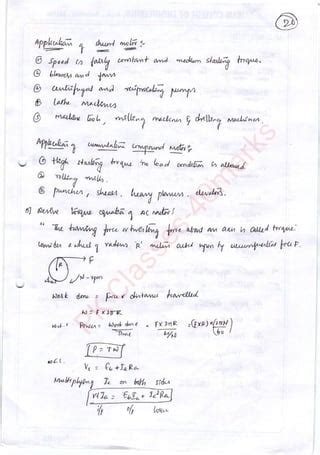 20
Application of shunt motor :-
Speed is fairly constant and medium starting torque.
blowers and fans
centrifugal and reciprocating pumps
Lathe machines
machine tools, milling machines & drilling machines.
Application of cumulative compound motor :-
High starting torque no load condition is allowed
rolling mills.
punches, shears, heavy planers, elevators.
Derive torque equation of DC motor!
"The turning force or twisting force about an axis is called torque"
Consider a wheel of radius 'R' meters acted upon by circumferential force F.
F
R
N - rpm
Work done = force x distance travelled
W = F x 2πR
Power = Work done / Time = F x 2πR / 60/N = (F x R) x (2πN / 60)
P = TW
Vt = Eb + Ia Ra
Multiplying Ia on both sides
VtIa = EbIa + Ia²Ra
i/p o/p losses